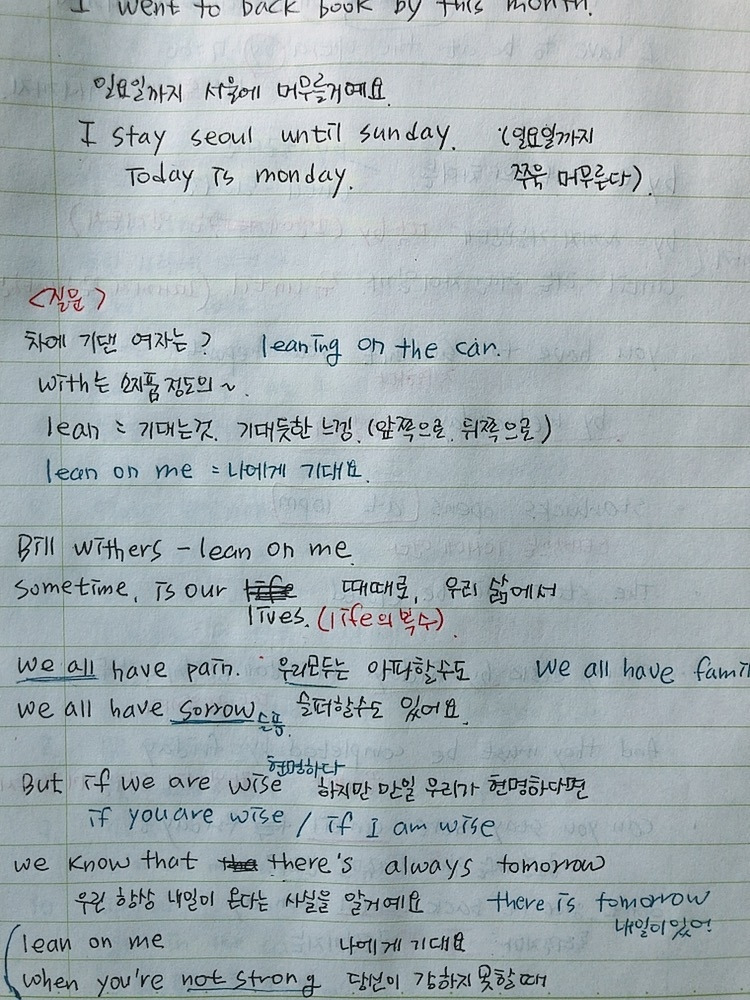 I went to back book by this month.
일요일까지 서울에 머무를거예요.
I stay seoul until sunday. (일요일까지
Today is monday. 쭈욱 머무른다).
<질문>
차에 기댄 여자는? leaning on the car.
with는 소지품 정도의 ~.
lean = 기대는것. 기대듯한 느낌. (앞쪽으로. 뒤쪽으로)
lean on me = 나에게 기대요.
Bill withers - lean on me.
sometime, is our life 때때로, 우리 삶에서
lives. (life의 복수).
we all have pain. 우리모두는 아파할수도 we all have famil
we all have sorrow 슬픔 슬퍼할수도 있어요.
현명하다
But if we are wise 하지만 만일 우리가 현명하다면
if you are wise / if I am wise
we know that the there's always tomorrow
우린 항상 내일이 온다는 사실을 알거예요 there is tomorrow
내일이있어!
lean on me 나에게 기대요
when you're not strong 당신이 강하지 못할때